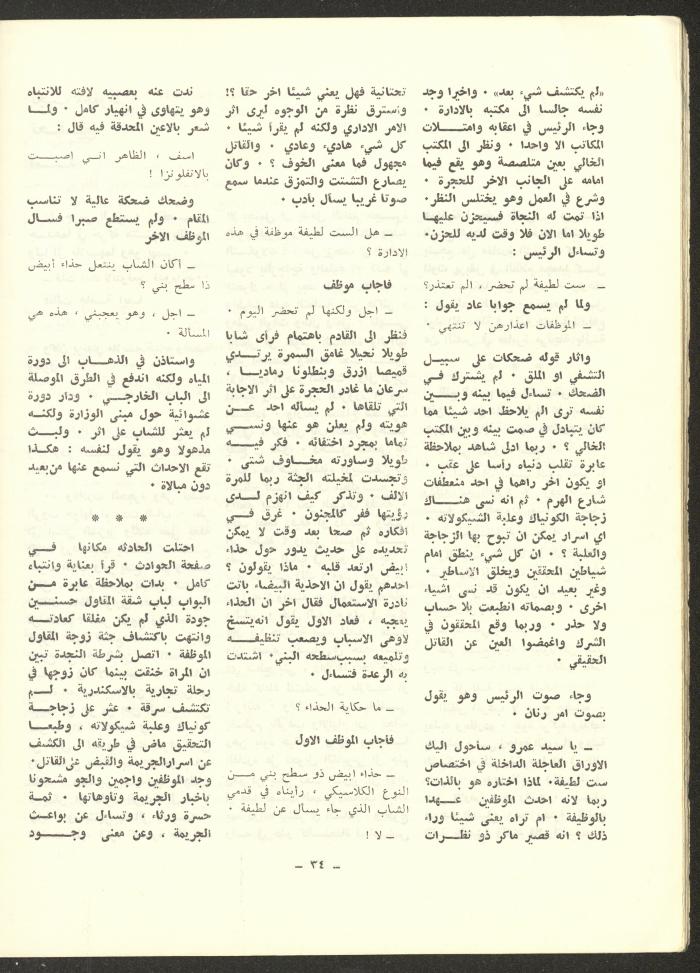 «لم يكتشف شيء بعد» ٠ واخيرا وجد
نفسه جالسا الى مكتبه بالادارة ٠
وجاء الرئيس في اعقابه وامتـــلات
المكاتب الا واحدا ٠ ونظر الى المكتب
الخالي بعين متلصصة وهو يقع فيما
امامه على الجانب الاخر للحجرة ٠
وشرع في العمل وهو يختلس النظر٠
اذا تمت له النجاة فسيحزن عليهـا
طويلا اما الان فلا وقت لديه للحزن٠
وتساءل الرئيس :
ــ ست لطيفة لم تحضر ، الم تعتذر؟
ولما لم يسمع جوابا عاد يقول :
ــ الموظفات اعذارهن لا تنتهي ٠
واثار قوله ضحكات على سبيــل
التشفي او الملق ٠ لم يشترك فــي
الضحك ٠ تساءل فيما بينه وبــين
نفسه ترى الم يلاحظ احد شيئا مما
كان يتبادل في صمت بينه وبين المكتب
الخالي ؟ ٠ ربما ادلى شاهد بملاحظة
عابرة تقلب دنياه رأسا على عقب ٠
او يكون اخر راهما في احد منعطفات
شارع الهرم ٠ ثم انه نسى هنــاك
زجاجة الكونياك وعلبة الشيكولاته ٠
اي اسرار يمكن ان تبوح بها الزجاجة
والعلبة ؟ ٠ ان كل شيء ينطق امام
شياطين المحققين ويخلق الاساطير ٠
وغير بعيد ان يكون قد نسى اشياء
اخرى ٠ وبصماته انطبعت بلا حساب
ولا حذر ٠ وربما وقع المحققون في
الشرك واغمضوا العين عن القاتل
الحقيقي ٠
وجاء صوت الرئيس وهو يقول
بصوت امر رنان ٠
ــ يا سيد عمرو ، سأحول اليك
الاوراق العاجلة الداخلة في اختصاص
ست لطيفة٠ لماذا اختاره هو بالذات؟
ربما لانه احدث الموظفين عــهدا
بالوظيفة ٠ ام تراه يعني شيئا وراء
ذلك ؟ انه قصير ماكر ذو نظــرات
تحتانية فهل يعني شيئا اخر حقا ؟!
واسترق نظرة من الوجوه ليرى اثر
الامر الاداري ولكنه لم يقرأ شيئا ٠
كل شيء هادىء وعادي ٠ والقاتل
مجهول فما معنى الخوف ؟ ٠ وكان
يصارع التشتت والتمزق عندما سمع
صوتا غريبا يسأل بأدب ٠
ــ هل الست لطيفة موظفة في هذه
الادارة ؟
فاجاب موظف
ــ اجل ولكنها لم تحضر اليوم ٠
فنظر الى القادم باهتمام فرأى شابا
طويلا نحيلا غامق السمرة يرتــدي
قميصا ازرق وبنطلونا رماديـا ،
سرعان ما غادر الحجرة على اثر الاجابة
التي تلقاها ٠ لم يساله احد عــن
هويته ولم يعلن هو عنها ونســي
تماما بمجرد اختفائه ٠ فكر فيــه
طويلا وساورته مخــاوف شتى ٠
وتجسدت لمخيلته الجثة ربما للمرة
الالف ٠ وتذكر كيف انهزم لــدى
رؤيتها ففر كالمجنون ٠ غرق فــي
افكاره ثم صحا بعد وقت لا يمكن
تحديده على حديث يدور حول حذاء
ابيض ارتعد قلبه ٠ ماذا يقولون ؟
احدهم يقول ان الاحذية البيضاء باتت
نادرة الاستعمال فقال اخر ان الحذاء
يعجبه ، فعاد الاول يقول انه يتسخ
لاوهى الاسباب ويصعب تنظيفــه
وتلميعه بسبب سطحه البني٠ اشتدت
به الرعدة فتساءل ٠
ــ ما حكاية الحذاء ؟
فأجاب الموظف الاول
ــ حذاء ابيض ذو سطح بني مــن
النوع الكلاسيكي ، رأيناه في قدمي
الشاب الذي جاء يسأل عن لطيفة ٠
ــ لا !
ندت عنه بعصبيه لافته للانتباه
وهو يتهاوى في انهيار كامل ٠ ولمــا
شعر بالاعين المحدقة فيه قال :
اسف ، الظاهر انــي اصبــت
بالانفلونزا !
وضحك ضحكة عالية لا تناسب
المقام ٠ ولم يستطع صبرا فسـال
الموظف الاخر
ــ أكان الشاب ينتعل حذاء أبيض
ذا سطح بني ؟
ــ اجل ، وهو يعجبني ، هذه هي
المسألة ٠
واستاذن في الذهـاب الى دورة
المياه ولكنه اندفع في الطرق الموصلة
الى الباب الخارجــي ٠ ودار دورة
عشوائية حول مبنى الوزارة ولكنــه
لم يعثر للشاب على اثر ٠ ولبــث
مذهولا وهو يقول لنفسه : هكــذا
تقع الاحداث التي نسمع عنها من بعيد
دون مبالاة ٠
* * *
احتلت الحادثه مكانها فــي
صفحة الحوادث ٠ قرأ بعناية وانتباه
كامل ٠ بدات بملاحظة عابرة مــن
البواب لباب شقة المقاول حسنــين
جودة الذي لم يكن مغلقا كعادتــه
وانتهت باكتشاف جثة زوجة المقاول
الموظفة ٠ اتصل بشرطة النجدة تبين
ان المراة خنقت بينما كان زوجها في
رحلة تجارية بالاسكندرية ٠ لــم
تكتشف سرقة ٠ عثر على زجاجــة
كونياك وعلبة شيكولاته ، وطبعــا
التحقيق ماض في طريقه الى الكشف
عن اسرار الجريمة والقبض على القاتل٠
وجد الموظفين واجمين والجو مشحونا
باخبار الجريمة وتاوهاتها ٠ ثمــة
حسرة ورثاء ، وتساءل عن بواعــث
الجريمة ، وعن معنى وجــود
ــ ٣٤ ــ